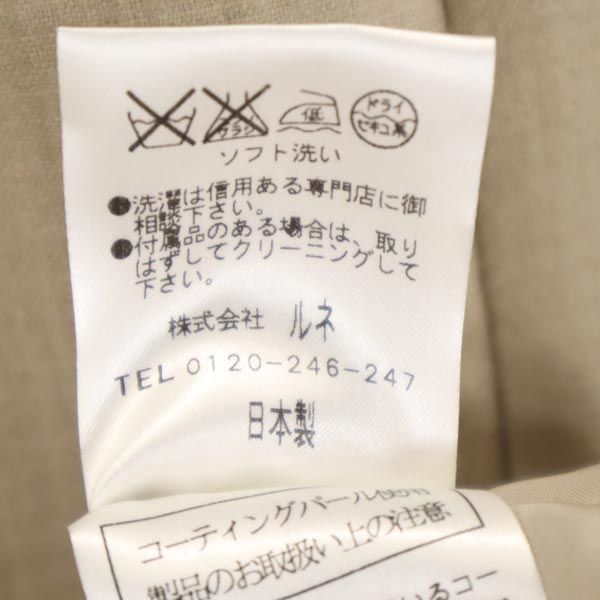 サラシ
低
ドライ
セキユ系
ソフト洗い
●洗濯は信用ある専門店に御
相談下さい。
●付属品のある場合は、取り
はずしてクリーニングして
下さい。
株式会社 ルネ
TEL 0120-246-247
日本製
コーティングパール使用
製品のお取扱い上の注意
いるコー